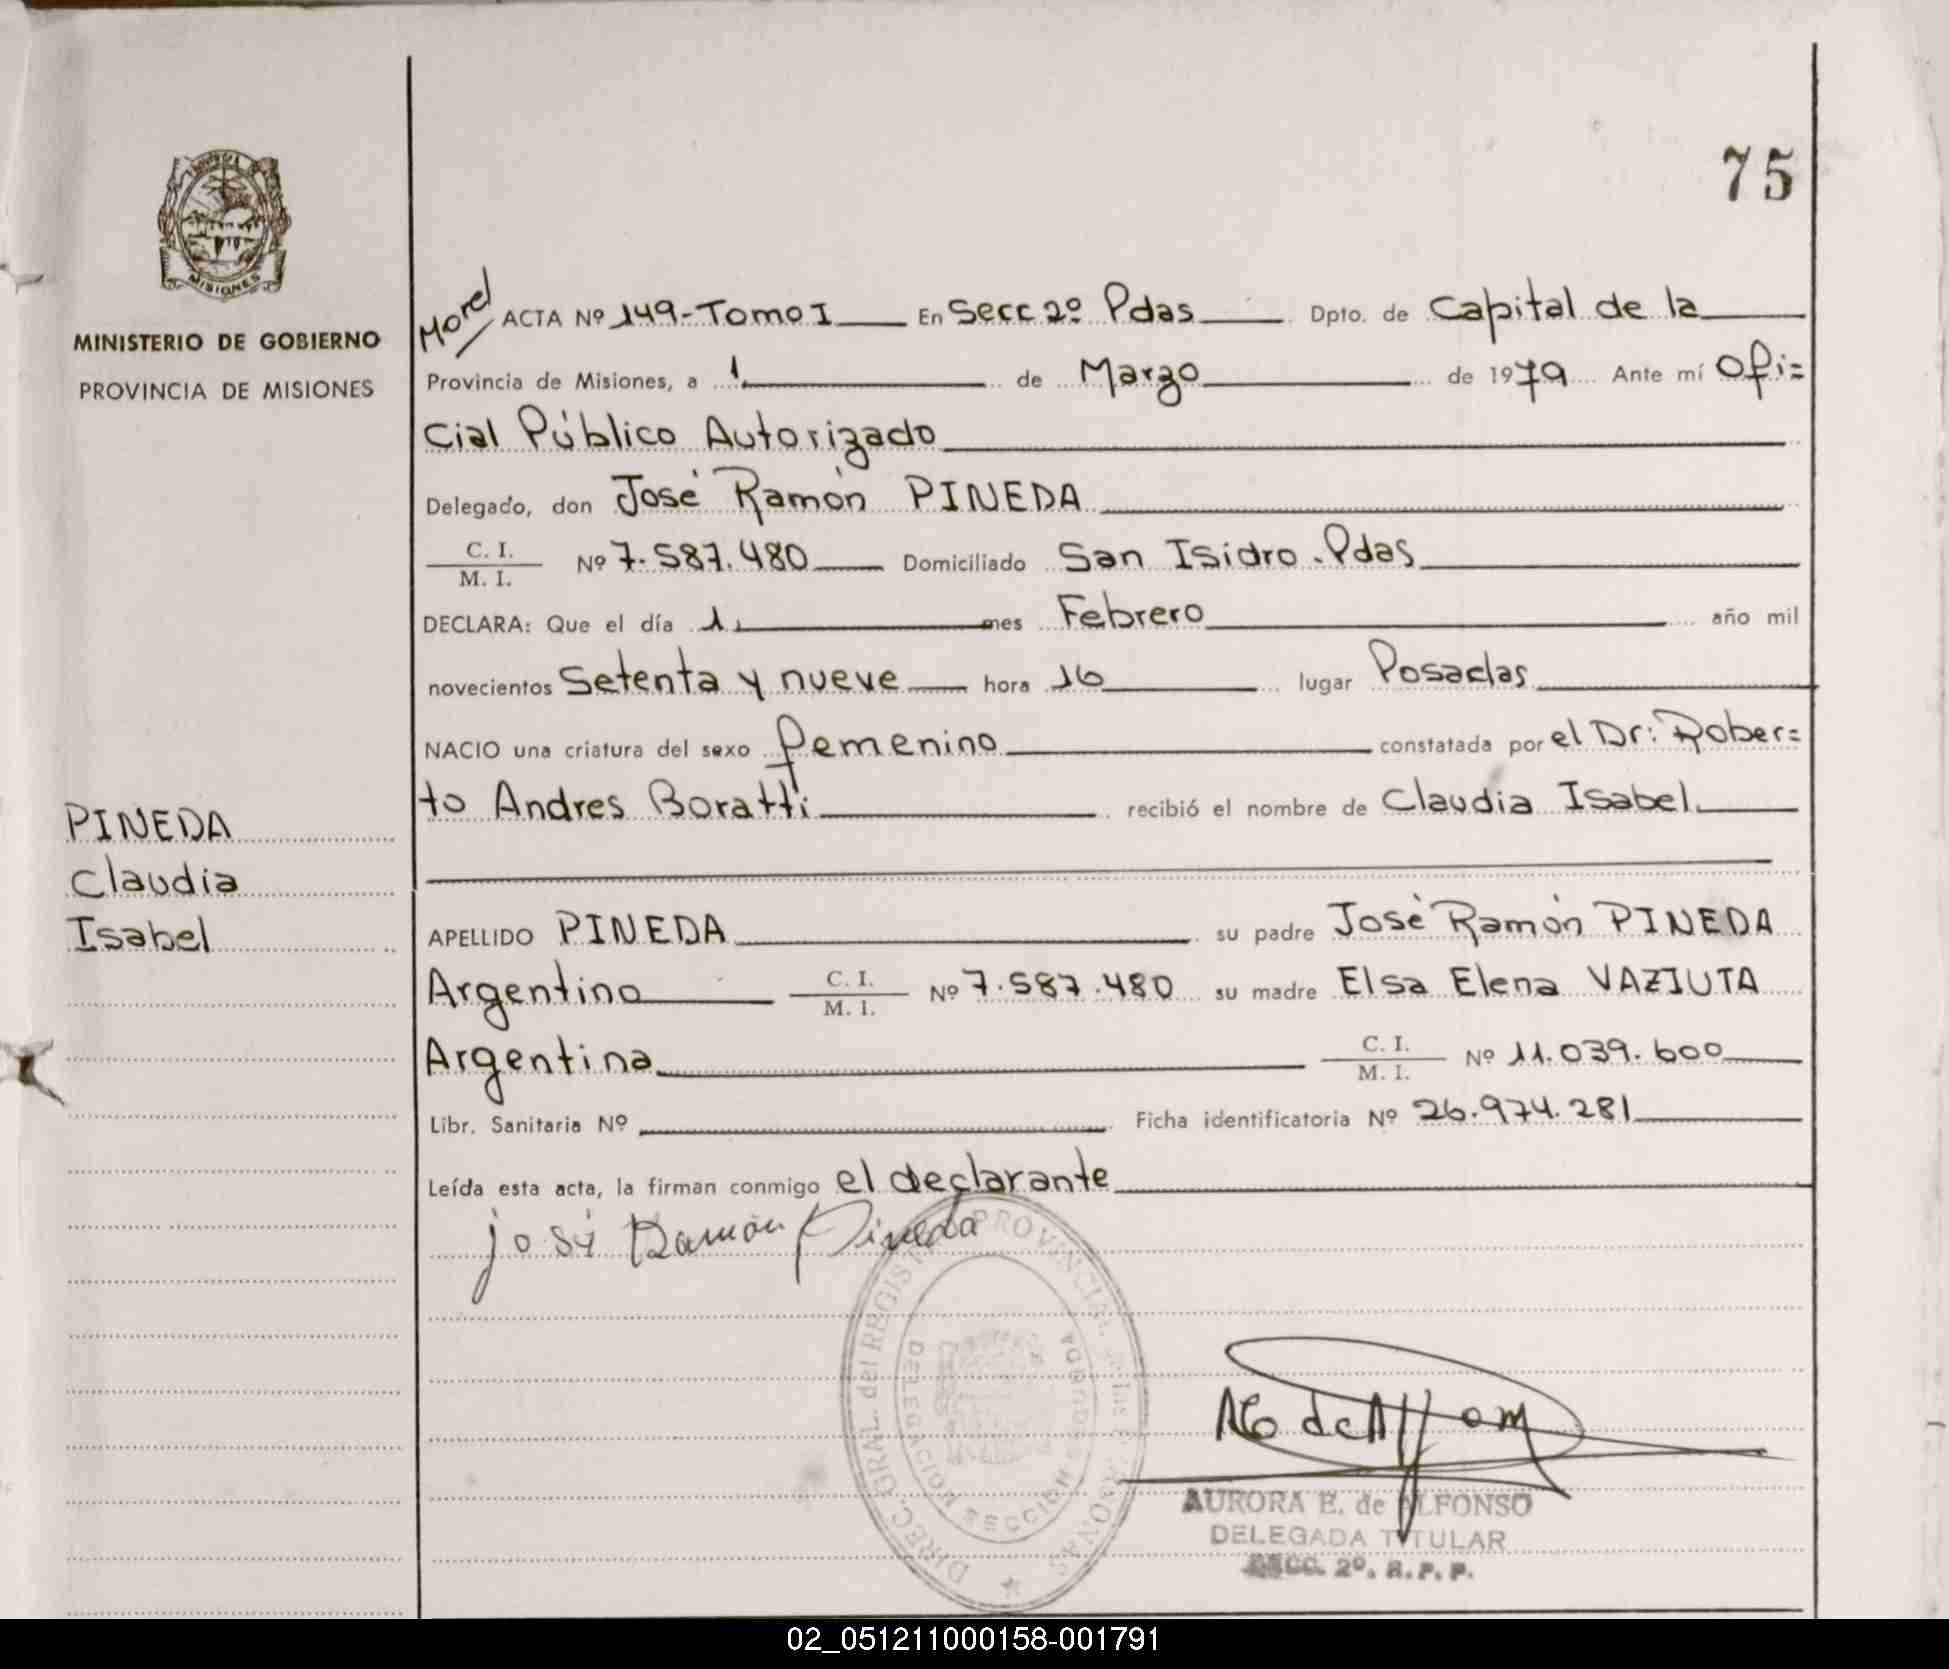 75
PROVINCIA de
MISIONES
MINISTERIO DE GOBIERNO
PROVINCIA DE MISIONES
Morel
ACTA Nº 149-Tomo I En Secc 2º Pdas Dpto. de Capital de la
Provincia de Misiones, a 1 de Marzo de 1979 Ante mí Ofi=
cial Público Autorizado
Delegado, don José Ramón PINEDA
C. I.
M. I. Nº 7.587.480 Domiciliado San Isidro.Pdas
DECLARA: Que el día 1 mes Febrero año mil
novecientos Setenta y nueve hora 16 lugar Posadas
NACIO una criatura del sexo femenino constatada por el Dr: Rober=
to Andres Boratti recibió el nombre de Claudia Isabel
PINEDA
Claudia
Isabel
APELLIDO PINEDA su padre José Ramón PINEDA
Argentino C. I.
M. I. Nº 7.587.480 su madre Elsa Elena VAZIUTA
Argentina C. I.
M. I. Nº 11.039.600
Libr. Sanitaria Nº Ficha identificatoria Nº 26.974.281
Leída esta acta, la firman conmigo el declarante
José Ramón Pineda
DIREC. GRAL. del REGISTRO PROVINCIAL de las PERSONAS
DELEGACION SECCION SEGUNDA
AURORA E. de ALFONSO
DELEGADA TITULAR
SECC. 2º. R. P. P.
02_051211000158-001791